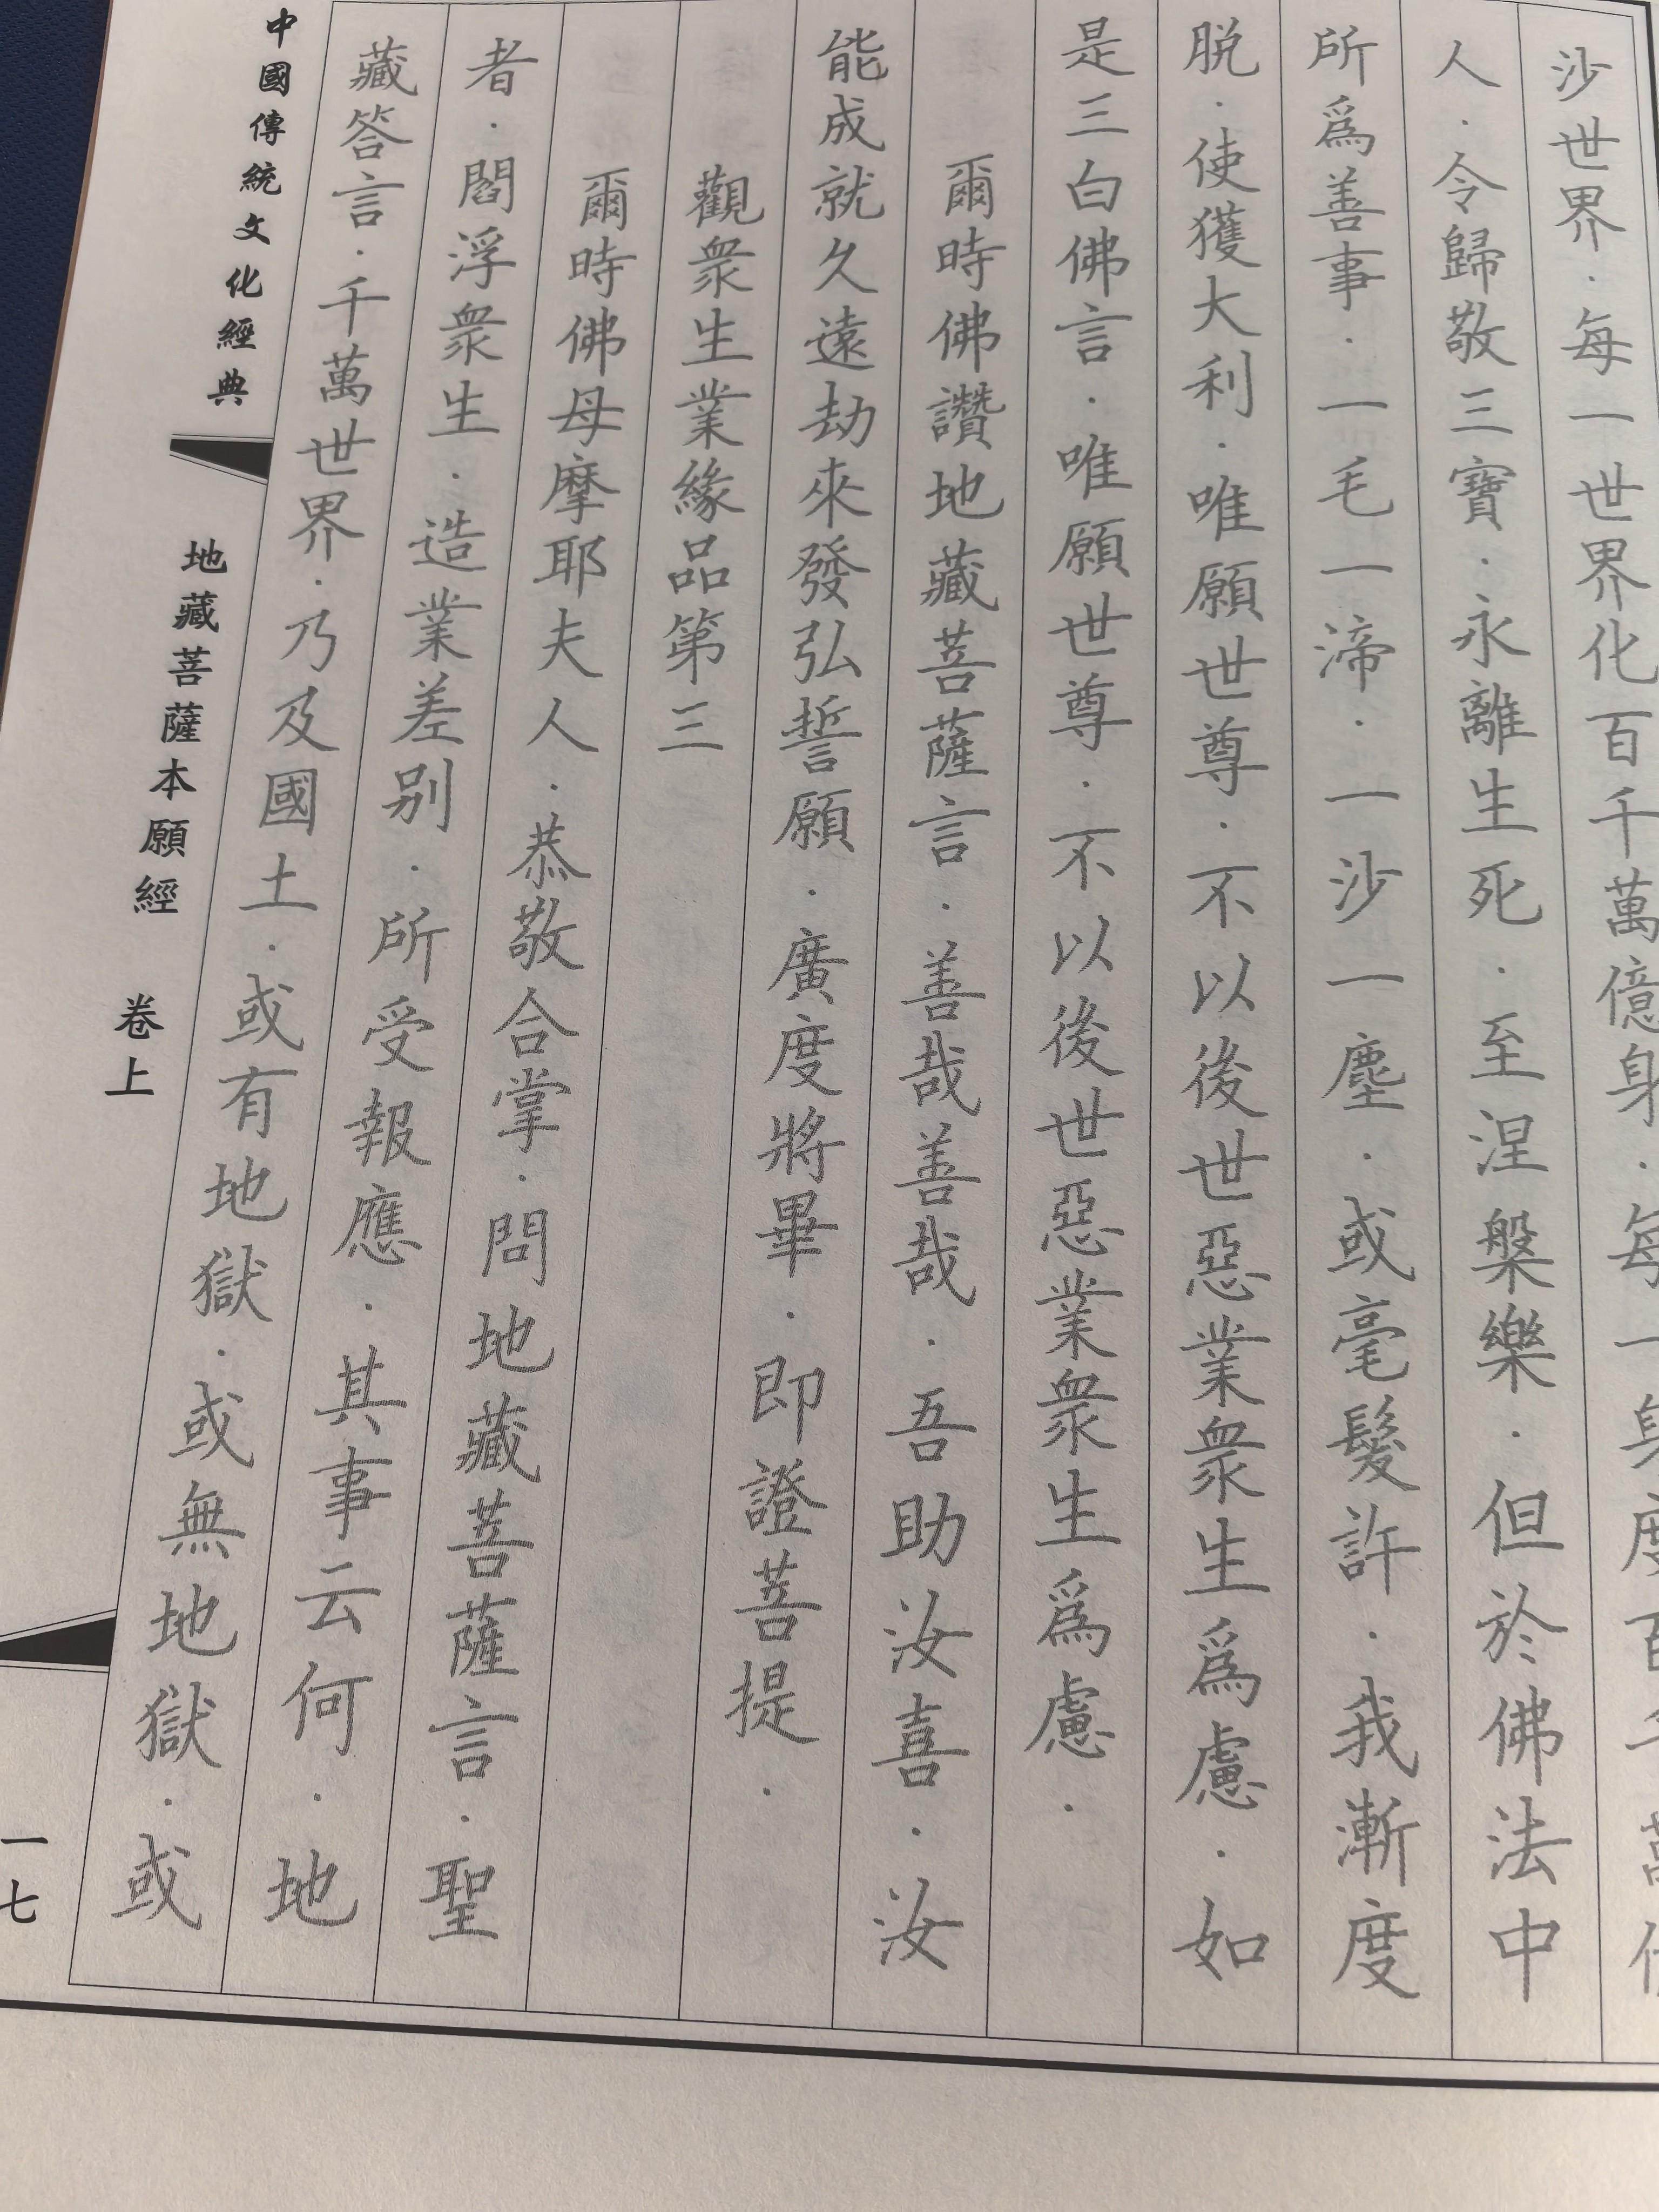 沙世界·每一世界化百千萬億身·每一身度百千萬億
人·令歸敬三寶·永離生死·至涅槃樂·但於佛法中
所爲善事·一毛一渧·一沙一塵·或毫髮許·我漸度
脱·使獲大利·唯願世尊·不以後世惡業衆生爲慮·如
是三白佛言·唯願世尊·不以後世惡業衆生爲慮·
爾時佛讚地藏菩薩言·善哉善哉·吾助汝喜·汝
能成就久遠劫來發弘誓願·廣度將畢·即證菩提·
觀衆生業緣品第三
爾時佛母摩耶夫人·恭敬合掌·問地藏菩薩言·聖
者·閻浮衆生·造業差别·所受報應·其事云何·地
藏答言·千萬世界·乃及國土·或有地獄·或無地獄·或
中國傳統文化經典
地藏菩薩本願經 卷上
一七